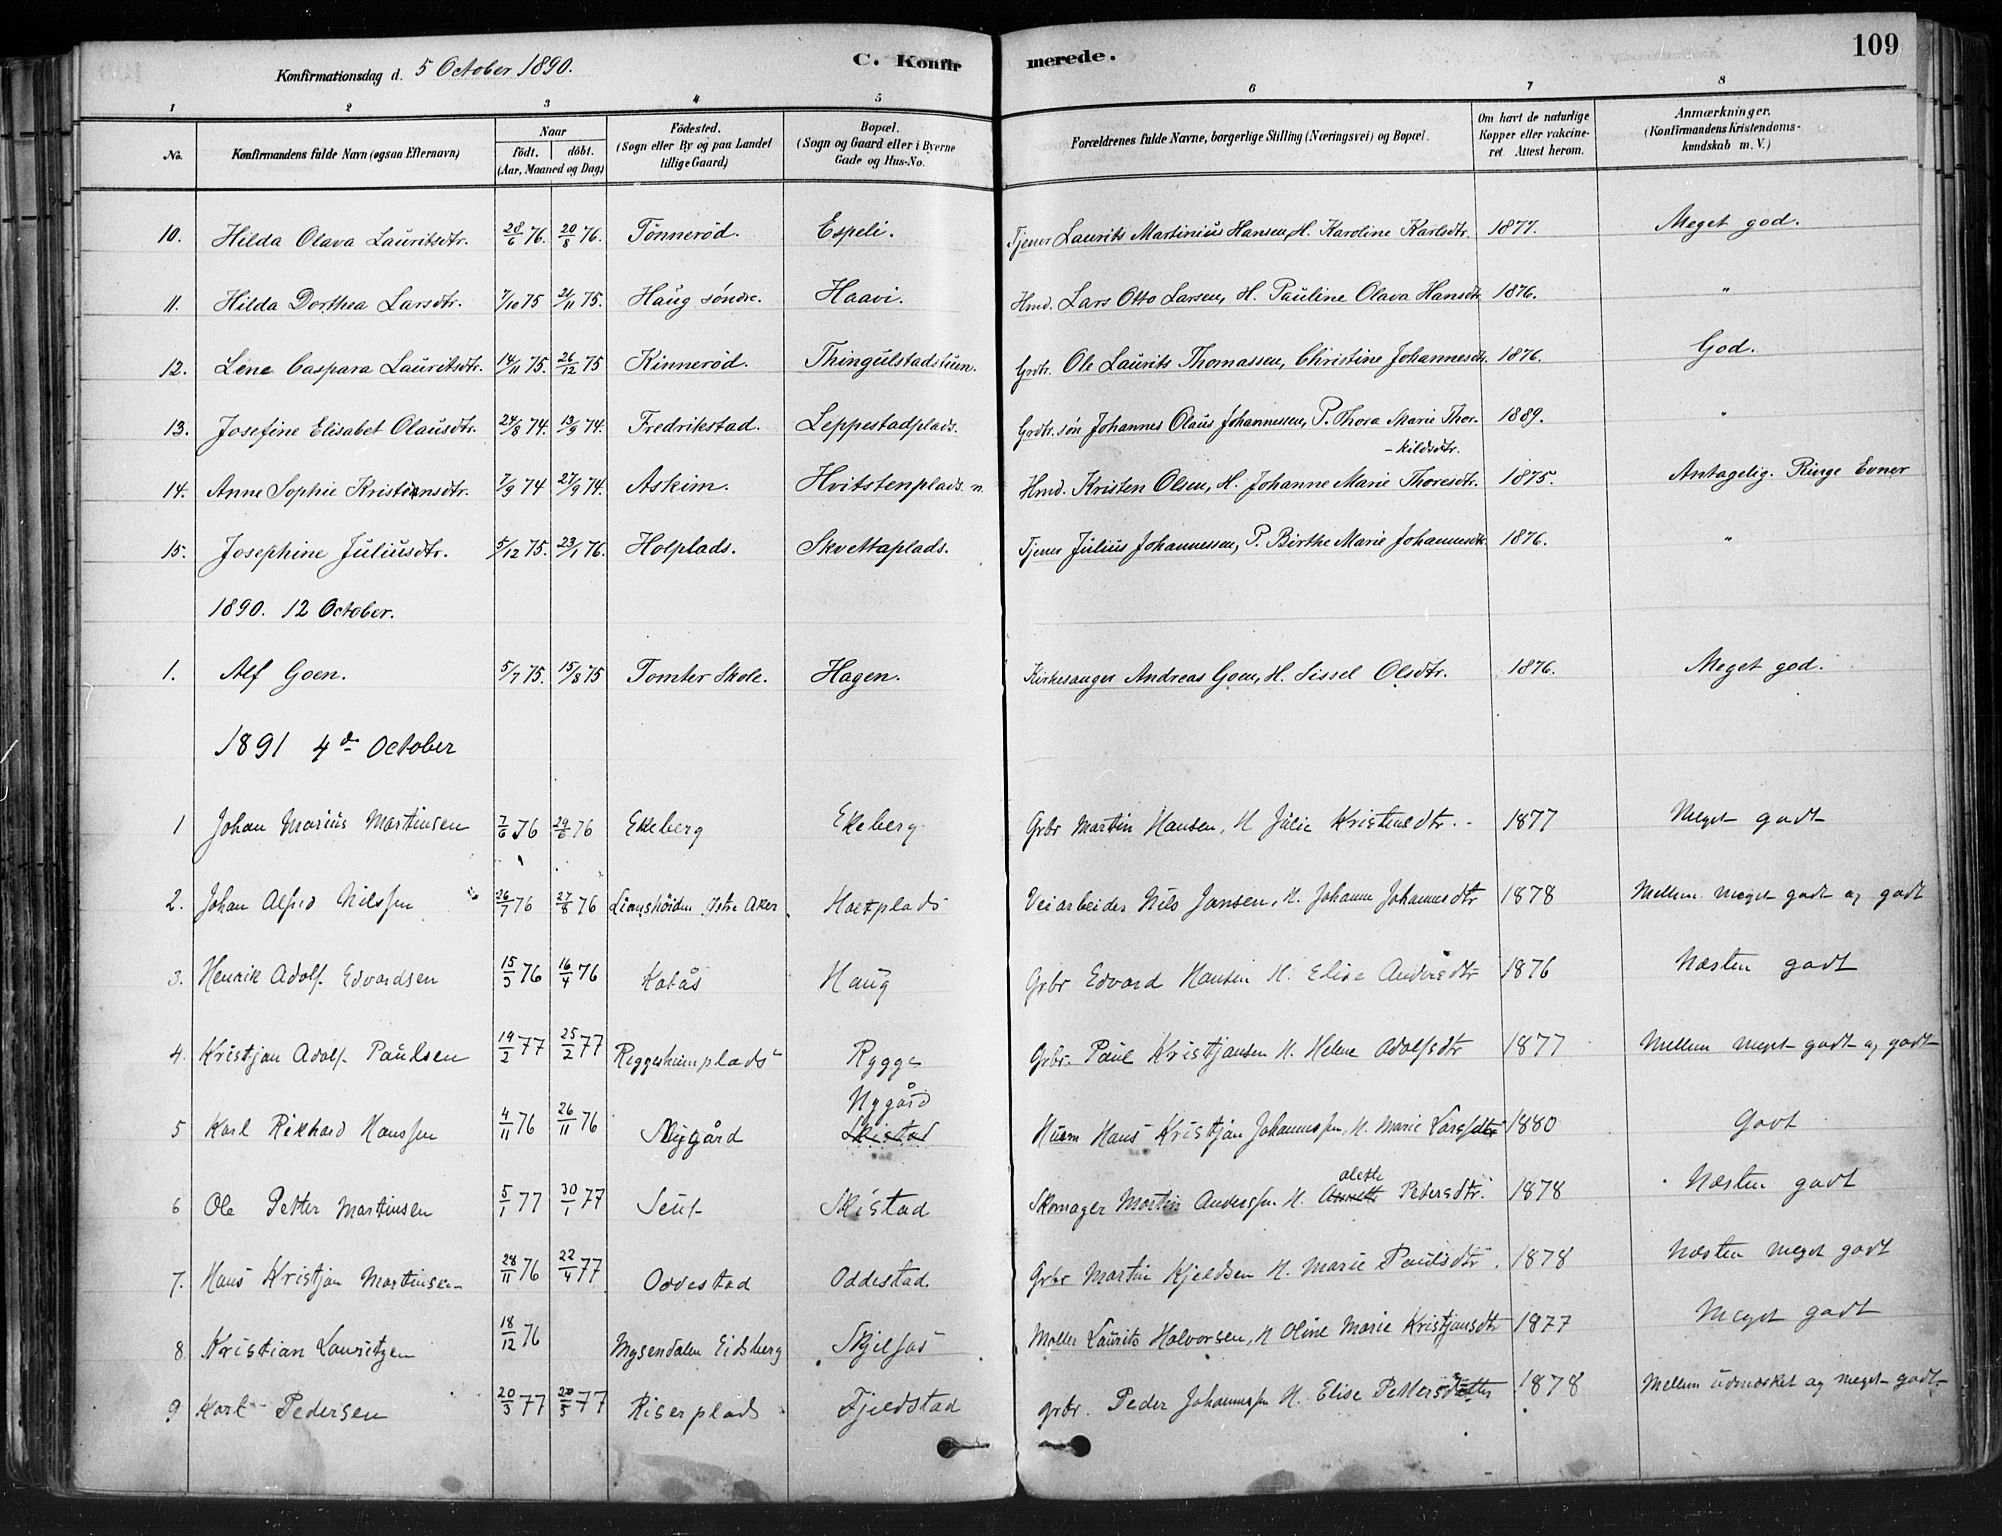 Konfirmationsdag d. 5 October 1890. C. Konfirmerede. 109
1 2 3 4 5 6 7 8
No. Konfirmandens fulde Navn (ogsaa Efternavn) Naar födt. döbt. (Aar, Maaned og Dag) Födested. (Sogn eller By og paa Landet tillige Gaard) Bopæl. (Sogn og Gaard eller i Byerne Gade og Hus-No. Forældrenes fulde Navne, borgerlige Stilling (Næringsvei) og Bopæl. Om havt de naturlige Kopper eller vakcineret Attest herom. Anmærkninger. (Konfirmandens Kristendomskundskab m. V.)
10. Hilda Olava Lauritsdtr. 28/6 76. 20/8 76. Tønnerød. Espeli. Tjener Laurits Martinius Hansen, H. Karoline Karlsdtr. 1877. Meget god.
11. Hilda Dorthea Larsdtr. 7/10 75 21/11 75. Haug søndre. Haavi. Hmd. Lars Otto Larsen, H. Pauline Olava Hansdtr. 1876. "
12. Lene Caspara Lauritsdtr. 14/11 75. 26/12 75 Kinnerød. Thingulstadstuen. Grdtr. Ole Laurits Thomassen, Christine Johannesdtr. 1876. God.
13. Josefine Elisabet Olausdtr. 24/8 74. 13/9 74. Fredrikstad. Leppestadplads. Grdtr. søn Johannes Olaus Johannessen, P. Thora Marie Thor- 1889. "
-kildsdtr.
14. Anne Sophie Kristiansdtr. 7/9 74 27/9 74. Askim. Hvitstenplads. n. Hmd. Kristen Olsen, H. Johanne Marie Thoresdtr. 1875. Antagelig. Ringe Evner
15. Josephine Juliusdtr. 5/12 75. 23/1 76. Holplads. Skvettaplads. Tjener Julius Johannessen, P. Birthe Marie Johannesdtr. 1876. "
1890. 12 October.
1. Alf Goen. 5/7 75. 15/8 75 Tomter Skole. Hagen. Kirkesanger Andreas Goen, H. Sissel Olsdtr. 1876. Meget god.
1891 4de October
1 Johan Marius Martinsen 7/6 76 29/6 76 Ekeberg Ekeberg Grbr Martin Hansen, H Julie Kristensdtr. 1877 Meget godt
2. Johan Alfred Nilssen 26/7 76 27/8 76 Lianshöiden Østre Aker Holtplads Veiarbeider Nils Jansen, H. Johanne Johannesdtr 1878 Mellem meget godt og godt
3. Henrik Adolf Edvardsen 15/3 76 16/4 76 Kolås Haug Grbr Edvard Hansen H. Elise Andersdtr 1876 Næsten godt
4. Kristjan Adolf Paulsen 19/2 77 25/2 77 Ryggesheimplads Rygge Grbr. Paul Kristjansen H. Helene Adolfsdtr 1877 Mellem meget godt og godt
Nygård
5 Karl Rikhard Hanssen 4/11 76 26/11 76 Nygård Skistad Husm Hans Kristjan Johannessen, H. Marie Larsdtr 1880 Godt
alette
6 Ole Petter Martinsen 5/1 77 30/1 77 Seut Skistad Skomager Martin Anderssen H. Annette Petersdtr. 1878 Næsten godt
7. Hans Kristjan Martinsen 28/11 76 22/4 77 Oddestad Oddestad. Grbr Martin Kjeldsen H. Marie Paulsdtr. 1878 Næsten meget godt
8 Kristian Lauritzen 18/12 76 Mysendalen Eidsberg Skjelfos Møller Laurits Halvorsen, H Oline Marie Kristjansdtr 1877 Meget godt
9 Karl Pedersen 20/3 77 20/5 77 Riserplads Fjeldstad grbr. Peder Johannessen H. Elise Pettersdatter 1878 Mellem udmærket og meget godt